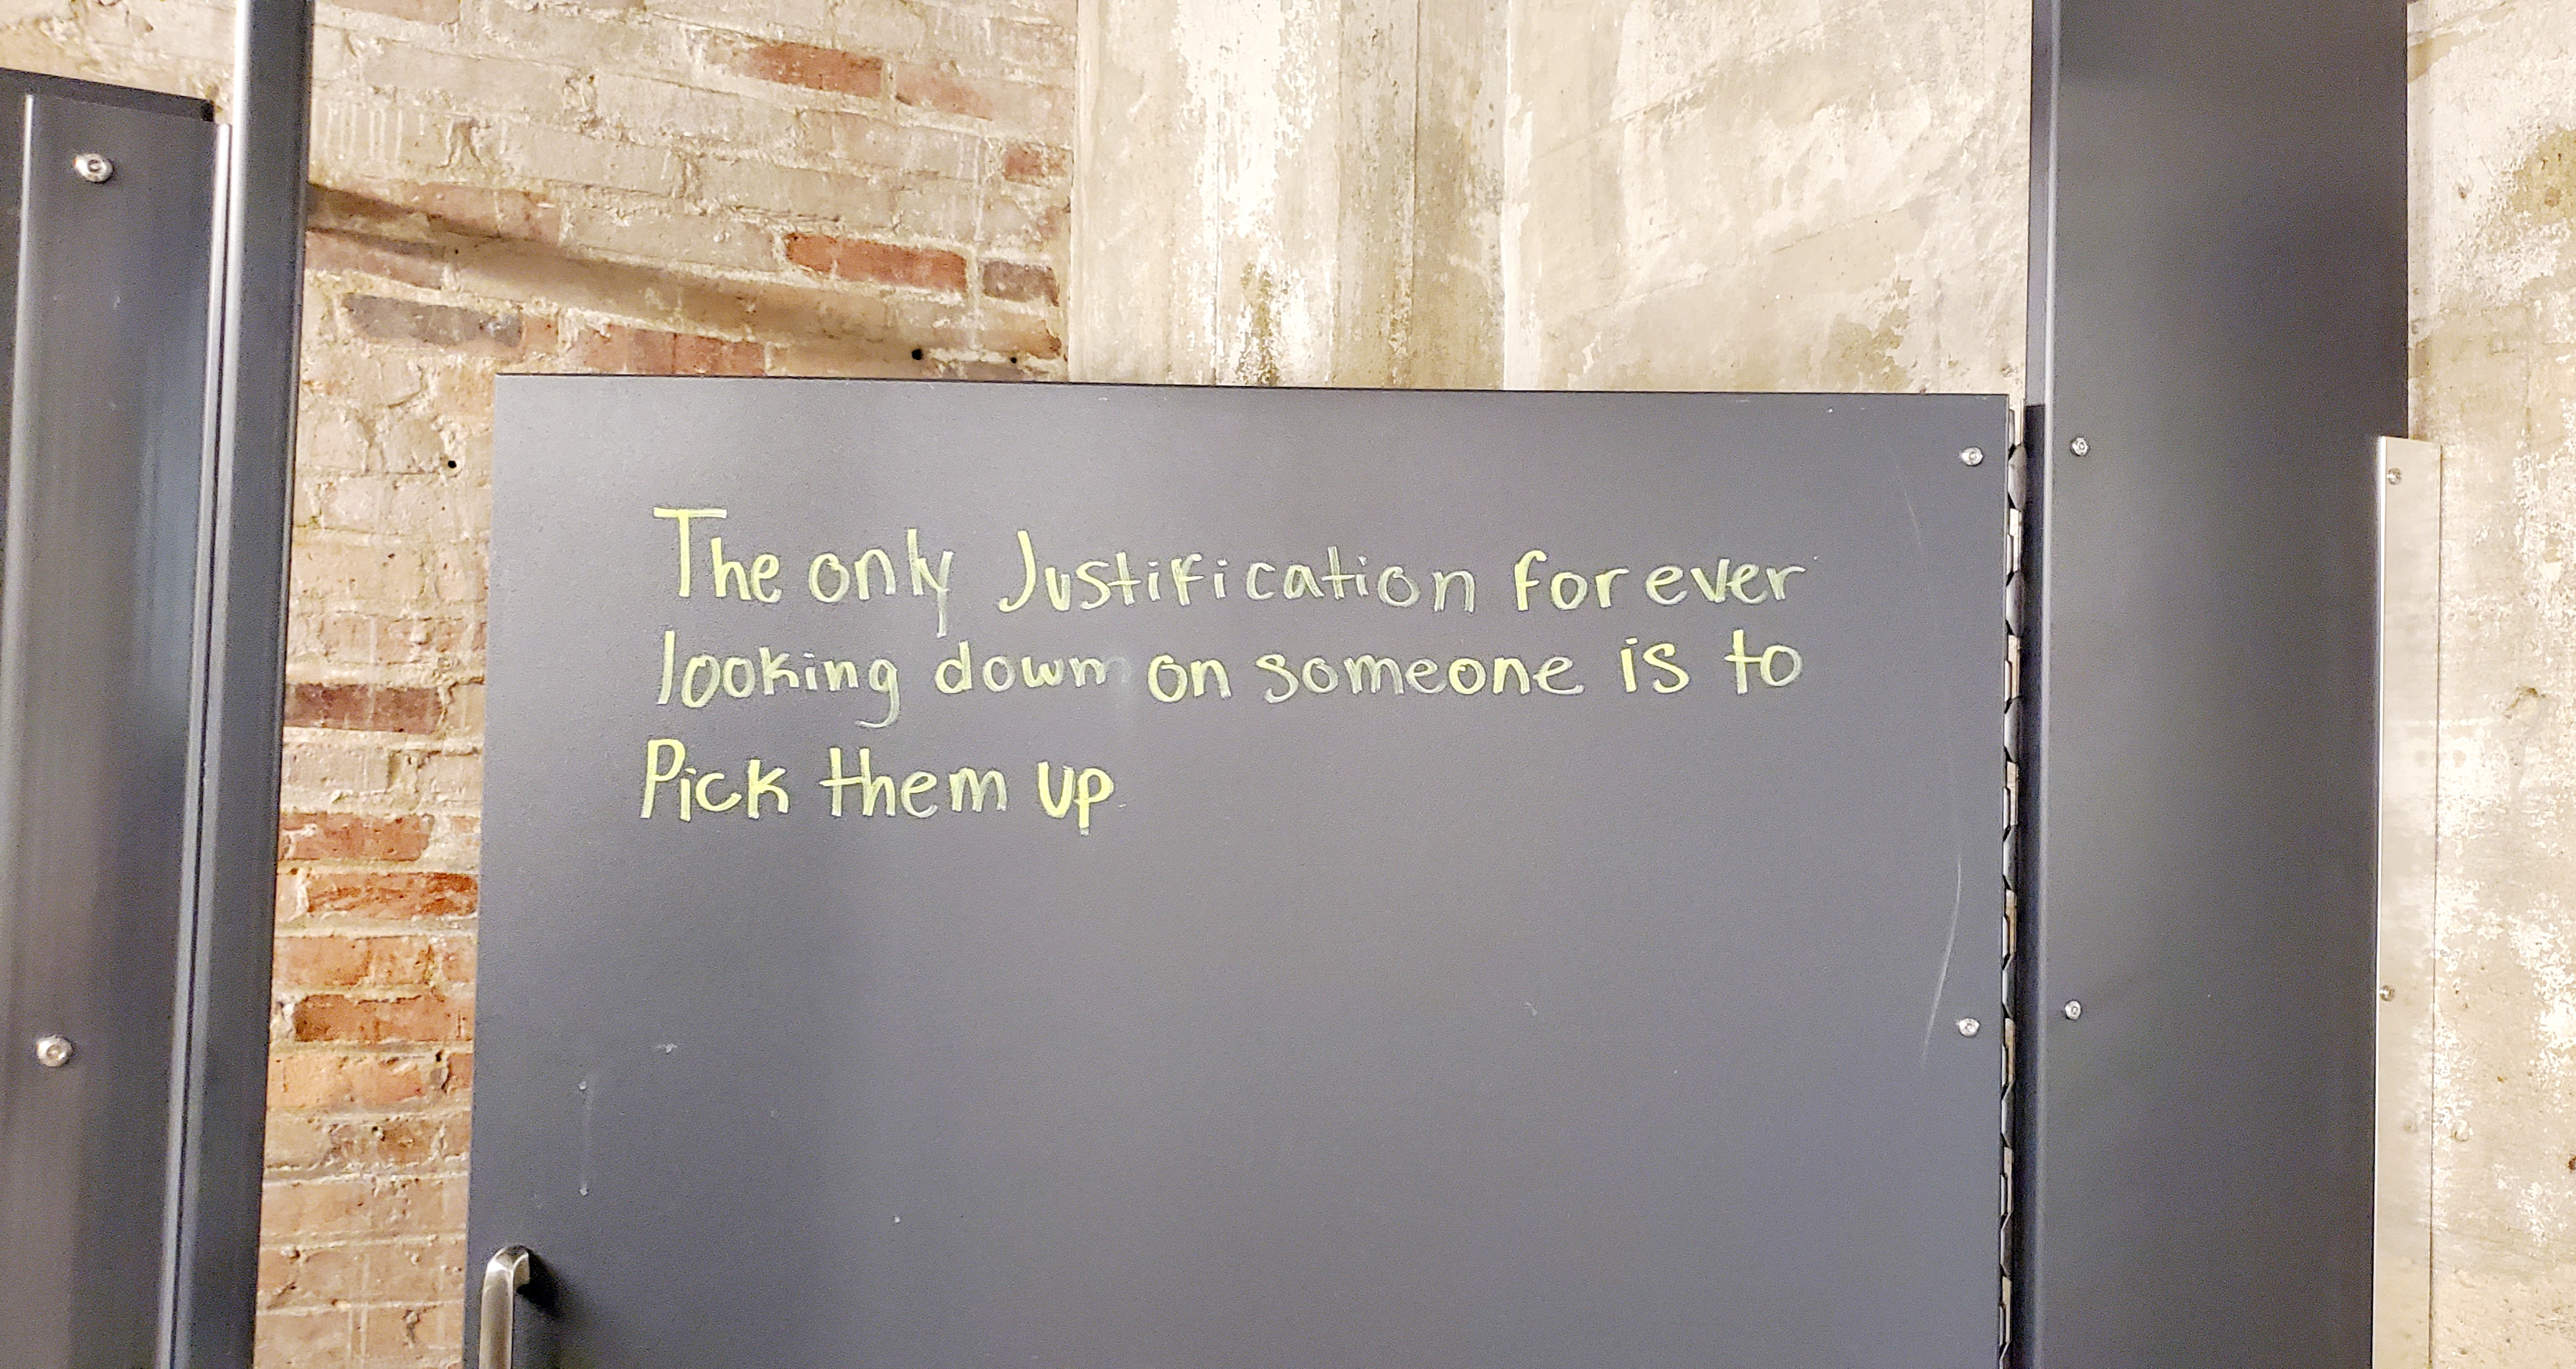 The only Justification for ever
looking down on someone is to
Pick them up